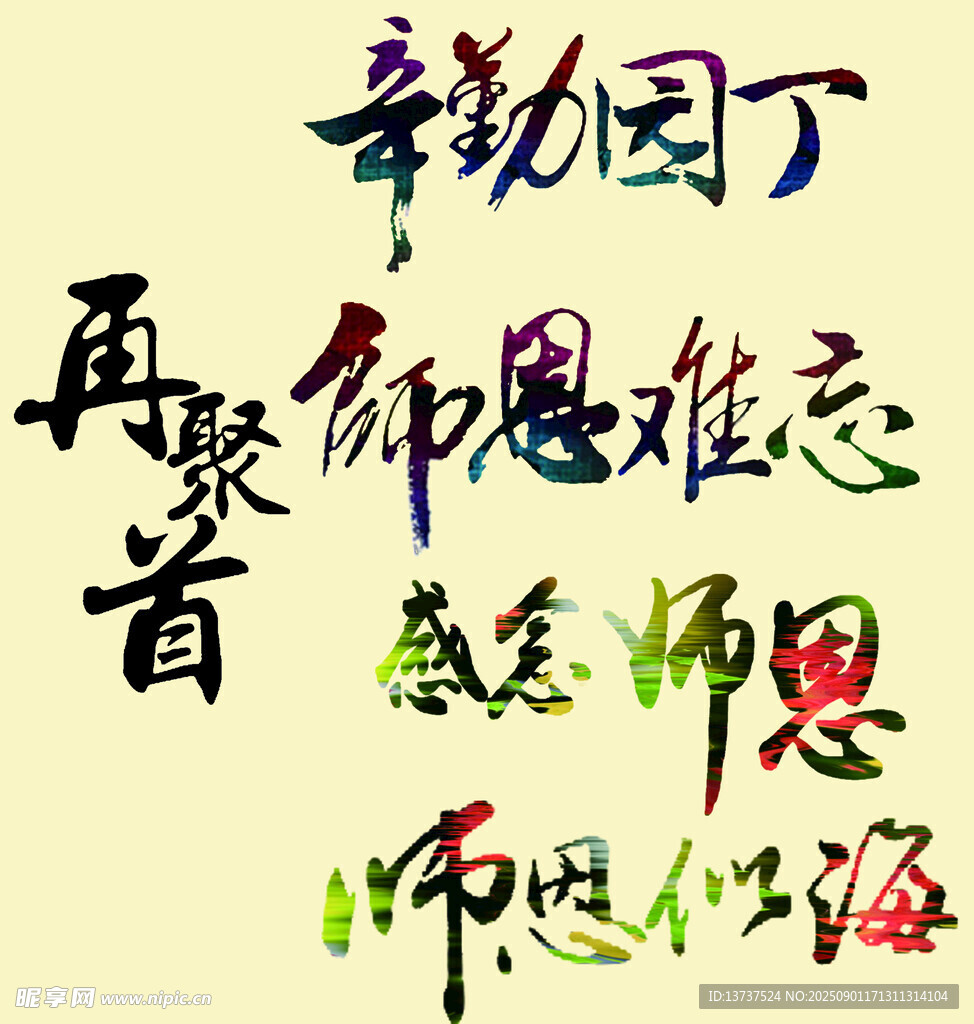 辛勤园丁
再聚首
师恩难忘
感念师恩
师恩似海
昵享网 www.nipic.cn
ID:13737524 NO:20250901171311314104